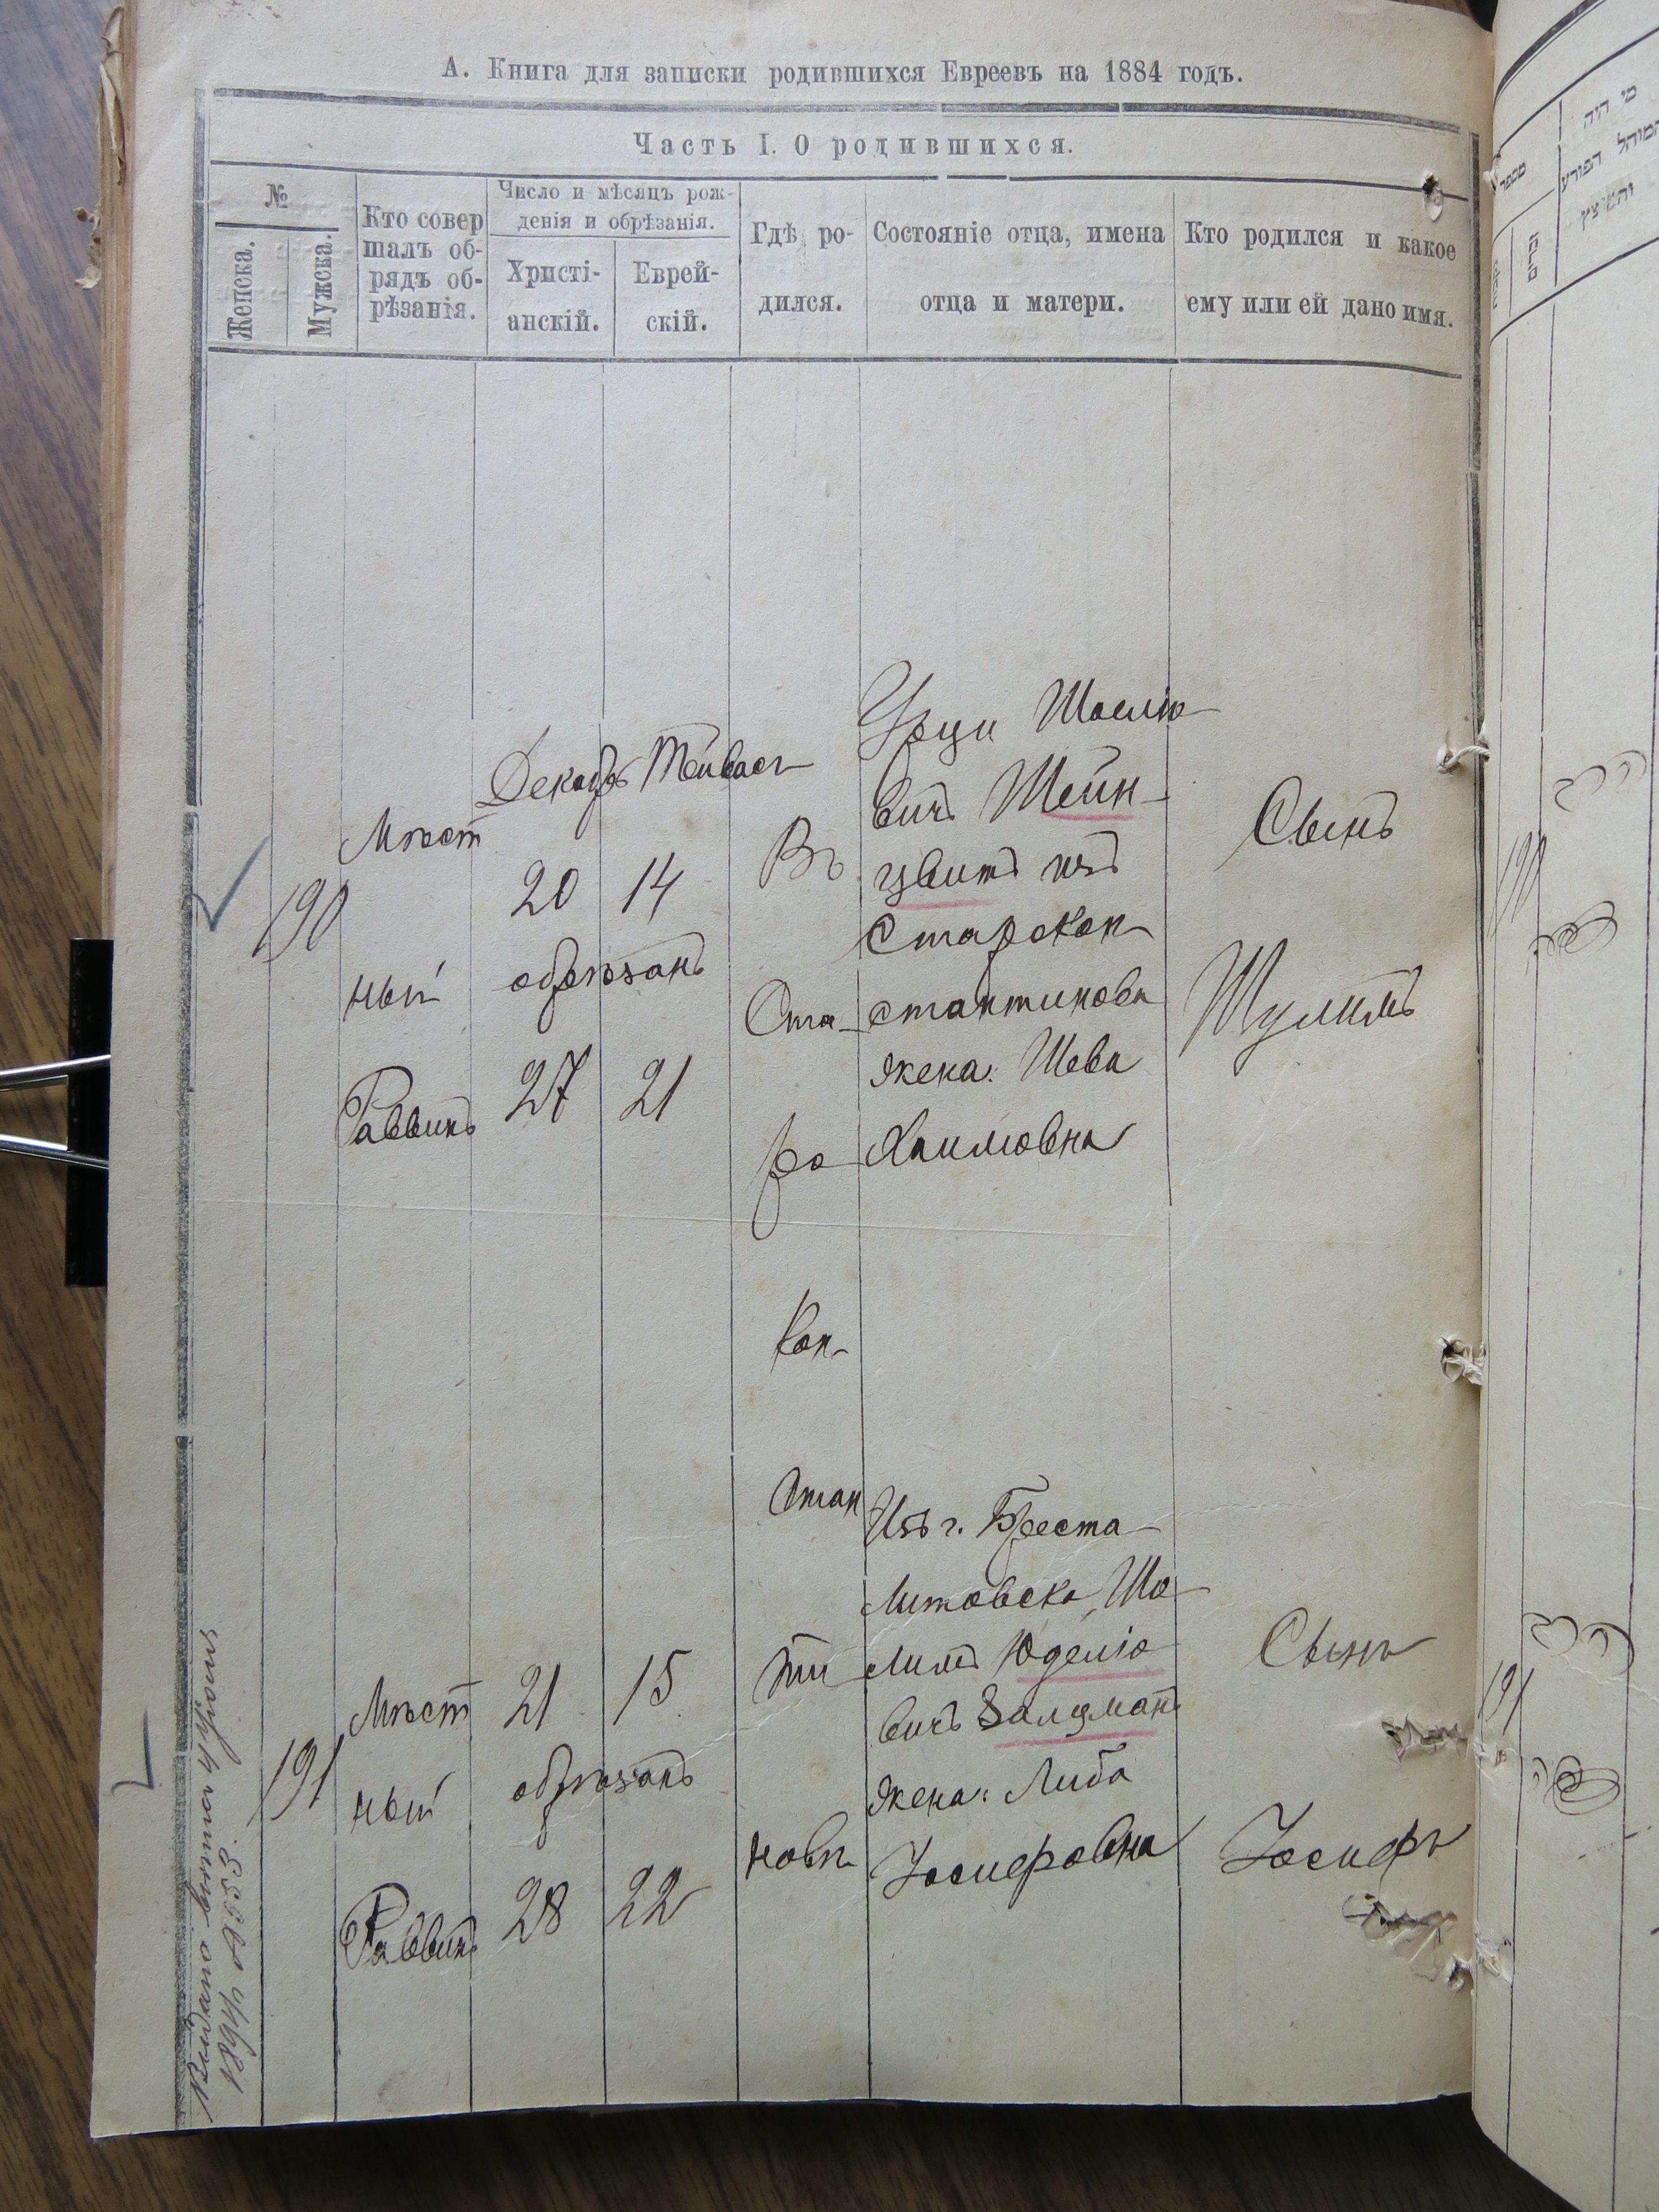 А. Книга для записки родившихся Евреевъ на 1884 годъ.
Часть I. О родившихся.
№
Женска.
Мужска.
Кто совер
шалъ об-
рядъ об-
рѣзанія.
Число и мѣсяцъ рож-
денія и обрѣзанія.
Христі-
анскій.
Еврей-
скій.
Гдѣ ро-
дился.
Состояніе отца, имена
отца и матери.
Кто родился и какое
ему или ей дано имя.
190
Мѣст
ный
Раввинъ
Декабрь Тейвасъ
20 14
обрѣзанъ
27 21
Въ
Ста-
ро
Кон-
стан
ти
новѣ
Урци Шмеліо
вичъ Шейн-
цвитъ изъ
Старокон
стантинова
жена: Шева
Хаимовна
Сынъ
Шулимъ
191
Мѣст
ный
Раввинъ
21 15
обрѣзанъ
28 22
Изъ г. Бреста
Литовска, Шо
лимъ Юделіо
вичъ Залцманъ
жена: Либа
Іосифовна
Сынъ
Іосифъ
מספר
זכרים
מי היה
המוהל הפורע
והמוצץ
190
191